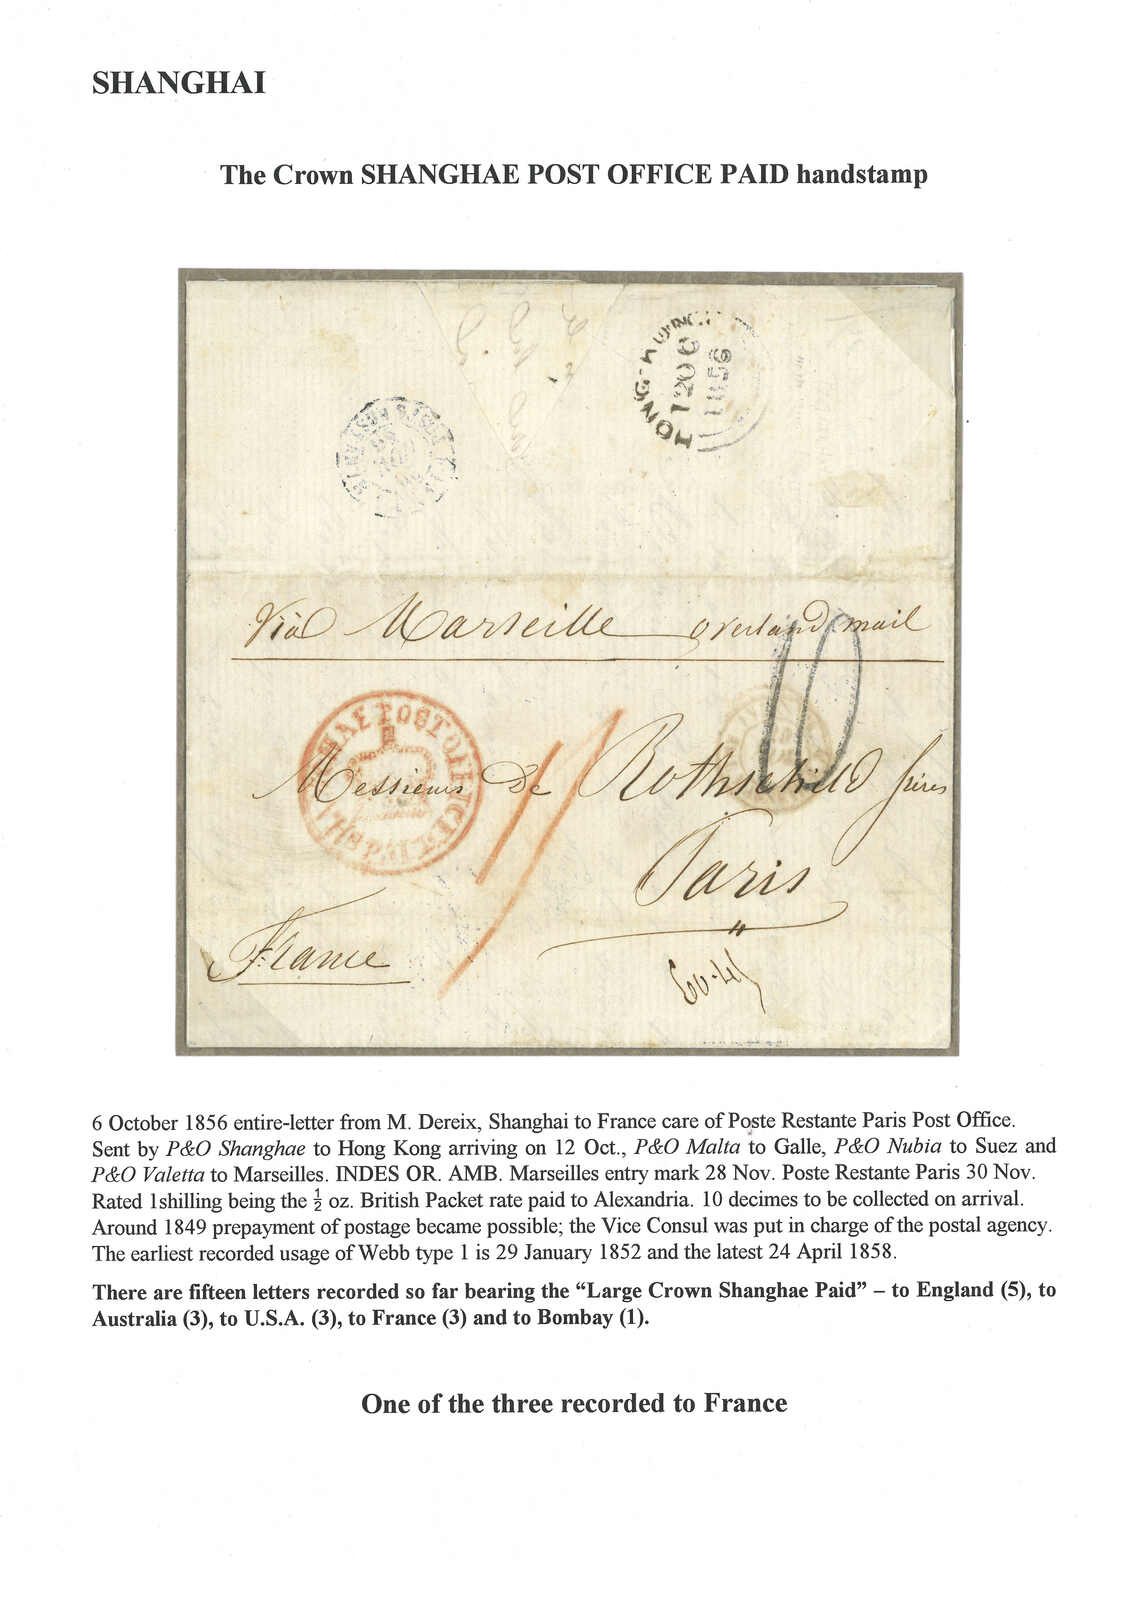 SHANGHAI
The Crown SHANGHAE POST OFFICE PAID handstamp
HONG-KONG
12 OC
1856
Viâ Marseille overland mail
10
SHANGHAE POST OFFICE PAID
Messieurs De Rothschild frères
Paris
France
6 October 1856 entire-letter from M. Dereix, Shanghai to France care of Poste Restante Paris Post Office.
Sent by P&O Shanghae to Hong Kong arriving on 12 Oct., P&O Malta to Galle, P&O Nubia to Suez and
P&O Valetta to Marseilles. INDES OR. AMB. Marseilles entry mark 28 Nov. Poste Restante Paris 30 Nov.
Rated 1shilling being the ½ oz. British Packet rate paid to Alexandria. 10 decimes to be collected on arrival.
Around 1849 prepayment of postage became possible; the Vice Consul was put in charge of the postal agency.
The earliest recorded usage of Webb type 1 is 29 January 1852 and the latest 24 April 1858.
There are fifteen letters recorded so far bearing the “Large Crown Shanghae Paid” – to England (5), to
Australia (3), to U.S.A. (3), to France (3) and to Bombay (1).
One of the three recorded to France